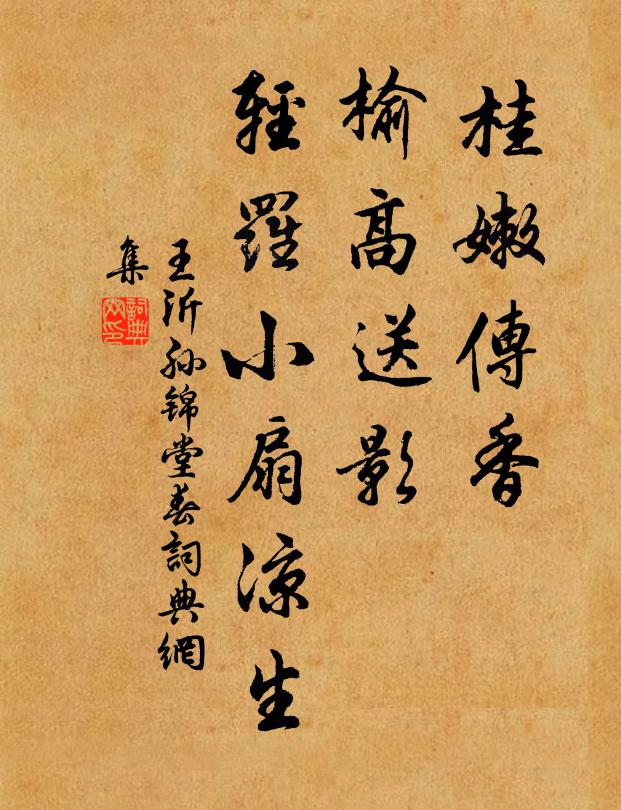 桂嫩傳香
榆高送影
輕羅小扇涼生
王沂孙锦堂春詞典網
集
詞典